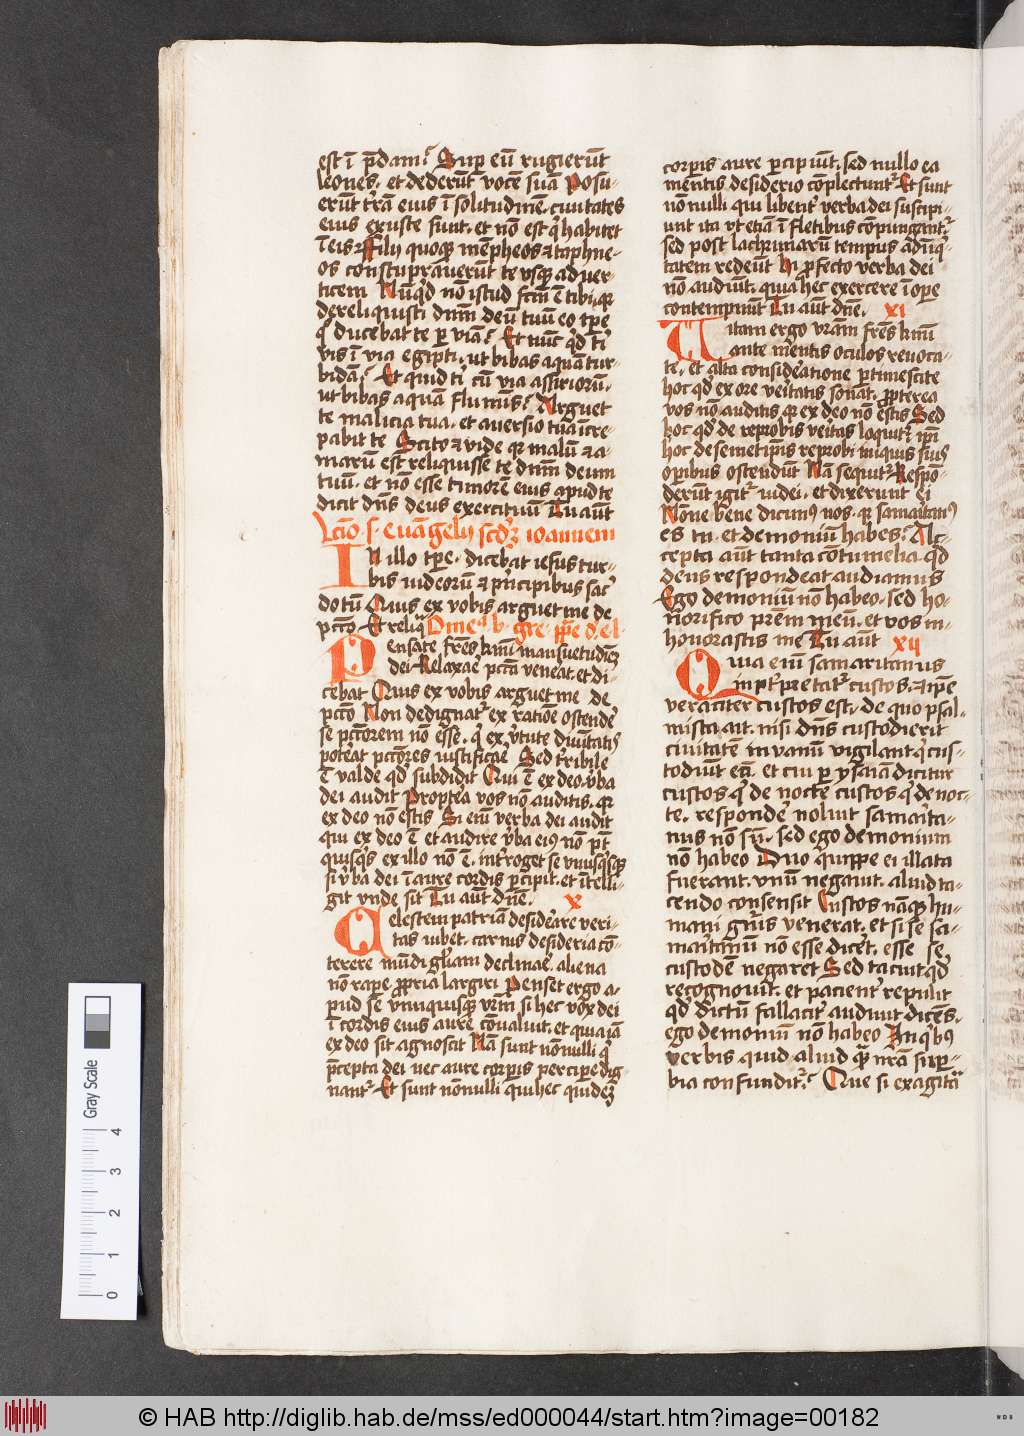 est ī p̄dam? Sup̱ eū rugierūt
leones. et dederūt vocē suā Posu-
erūt t̄rā eius ī solitudinē. ciuitates
eius exuste sunt. et nō est q̇ habitet
ī eis Filii quoqꝫ mēpheos ⁊ taphne-
os constuprauerūt te vsqꝫ ad ver-
ticem Nūqͥd nō istud fcm̄ ē tibi. qꝛ
dereliquisti dn̄m deū tuū eo tp̄e
qͦ ducebat te ꝑ viā? Et nūc qͥd ti
vis ī via egipti. ut bibas aquā tur-
bidā? Et quid tͥ cū via assirioruꝫ.
ut bibas aquā fluminis? Arguet
te malicia tua. et auersio tua īcre-
pabit te Scito ⁊ vide qꝛ malū ⁊ a-
marū est reliquisse te dn̄m deum
tuū. et nō esse timorē eius apud te
dicit dn̄s deus exercituū Tu aūt
Lc̄io .s. euāgelii scd̄ꝫ ioannem
IN illo tp̄e. dicebat iesus tur-
bis iudeorū ⁊ pͥncipibus sac̄
dotū Quis ex vobis arguet me de
pctō Et reliqͣ Omeͣ b. gre. pp̄e d. el.
Pensate fr̄es kmi mansuetudinē
dei Relaxar̄e pctā venerat. et di-
cebat Quis ex vobis arguet me de
pctō Non dedignat᷑ ex ratiōe ostender̄e
se pctōrem nō esse. qͥ ex vͬtute diuītatis
poterat pctōres iustificare Sed tͬribile
ē valde qd̄ subdidit Qui ē ex deo. vͬba
dei audit Propterea vos nō auditis. qꝛ
ex deo nō estis Si em̄ verba dei audit
qui ex deo ē et audire vͬba eiꝰ nō pt̄
quisqͥs ex illo nō ē. introget se vnusqͥsqꝫ
si vͬba dei ī aure cordis ꝑcipit. et ītelli-
git vnde sit Tu aūt dn̄e. X
Celestem patriā desiderare veri-
tas iubet. carnis desideria cō-
terere mūdi gl̄iam declinare. aliena
nō rape. ꝓpria largiri Penset ergo a-
pud se vnusquisqꝫ vr̄m si hec vox dei
ī cordis eius aure cōualuit. et quia iā
ex deo sit agnoscit Nā sunt nōnulli qͥ
p̄cepta dei nec aure corꝑis percipe dig
nant᷑ Et sunt nōnulli qui hec quidē
corꝑis aure ꝑcipiūt. sed nullo ea
mentis desiderio cōplectunt᷑ Et sunt
nōnulli qui libent̄ verba dei suscipi-
unt ita vt etiā ī fletibus cōpungant᷑
sed post lachrimarū tempus ad īiqͥ-
tatem redeūt Hi ꝓfecto verba dei
nō audiūt. quia hec exercere ī ope
contempnūt Tu aūt dn̄e. XI
Vitam ergo vr̄am fr̄es kmi
ante mentis oculos reuoca-
te. et alta consideratione ꝑtimescite
hoc qd̄ ex ore veritatis sonat. ꝓpterea
vos nō auditis. qꝛ ex deo nō estis Sed
hoc qd̄ de reprobis veritas loquit᷑ ip̄i
hoc de semetip̄is reprobi iniquis suis
oꝑibus ostendūt Nā sequit᷑ Respō-
derūt igit᷑ iudei. et dixerunt ei
Nōne bene dicimꝰ nos. qꝛ samaritanꝰ
es tu. et demoniū habes? Ac-
cepta aūt tanta cōtumelia. qd̄
deus respondeat audiamus
Ego demoniū nō habeo. sed ho-
norifico pr̄em meū. et vos in-
honorastis me Tu aūt XII
Quia em̄ samaritanus
int̄p̄tat᷑ custos. ⁊ ip̄e
veraciter custos est. de quo psal-
mista ait. nisi dn̄s custodierit
ciuitatē in vanū vigilant qͥ cus-
todiūt eā. et cui ꝑ ysaiā dicitur
custos qͥd de nocte custos qͥd de noc-
te. respondere noluit samarita-
nus nō sū. sed ego demonium
nō habeo Duo quippe ei illata
fuerant. vnū negauit. aliud ta-
cendo consensit Custos nāqꝫ hu-
mani gn̄ris venerat. et si se sa-
maritanū nō esse dicet̄. esse se
custodē negaret Sed tacuit qd̄
recognouit. et pacient̄ repulit
qd̄ dictū fallacit̄ audiuit dicēs.
ego demoniū nō habeo In qͥbꝰ
verbis quid aliud qͣ nr̄a suꝑ-
bia confundit᷑? Que si exagitatͣ
Gray Scale
0 1 2 3 4
© HAB http://diglib.hab.de/mss/ed000044/start.htm?image=00182